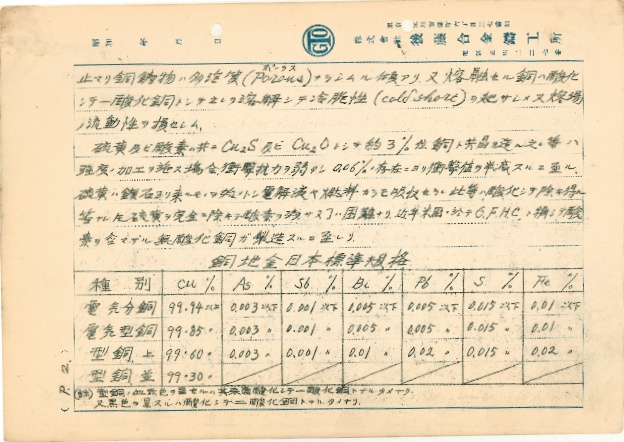 昭和 年 月 日
GTO
株式會社 後藤合金鑄工所
止マリ銅鋳物ハ多泡質(Porous)ナラシムル傾アリ又熔融セル銅ハ酸化
ポーラス
シテ一酸化銅トシテヨク溶解シテ冷脆性(cold short)ヲ起サシメ又熔場
ノ流動性ヲ損セシム。
硫黄及ビ酸素ハ共ニCu₂S及ビCu₂Oトシテ約3%位銅ト共晶ヲ造ル之等ハ
強度、加工ヲ 場合衝撃抗力ヲ弱 0.06% 存在ニヨリ衝撃値ヲ半減スルニ至ル
硫黄ハ鑛石ヨリ来 電解液ヤ燃料カラモ吸収セラレ此等ハ酸化シテ除キ得ル
硫黄ヲ完全ニ除キテ酸素ヲ残サヌ ハ困難ナリ近年米国ニ於テO.F.H.C.ト稱シテ酸
素ヲ含マザル無酸化銅ガ製造スルニ至レリ
銅地金日本標準規格
種別 Cu % As % Sb % Bi % Pb % S. % Fe %
電気分銅 99.94以上 0.003以下 0.001以下 0.005以下 0.005以下 0.015以下 0.01以下
電気型銅 99.85〃 0.003〃 0.001〃 0.005 0.005〃 0.015〃 0.01〃
型銅上 99.60〃 0.003〃 0.001〃 0.01〃 0.02〃 0.015〃 0.02〃
型銅並 99.30〃
(註) 型銅ノ 色ヲ呈セルハ其表面酸化シテ一酸化銅トナルタメナリ.
又黒色ヲ呈スルハ酸化シテ二酸化銅トナルタメナリ.
(P.2.)